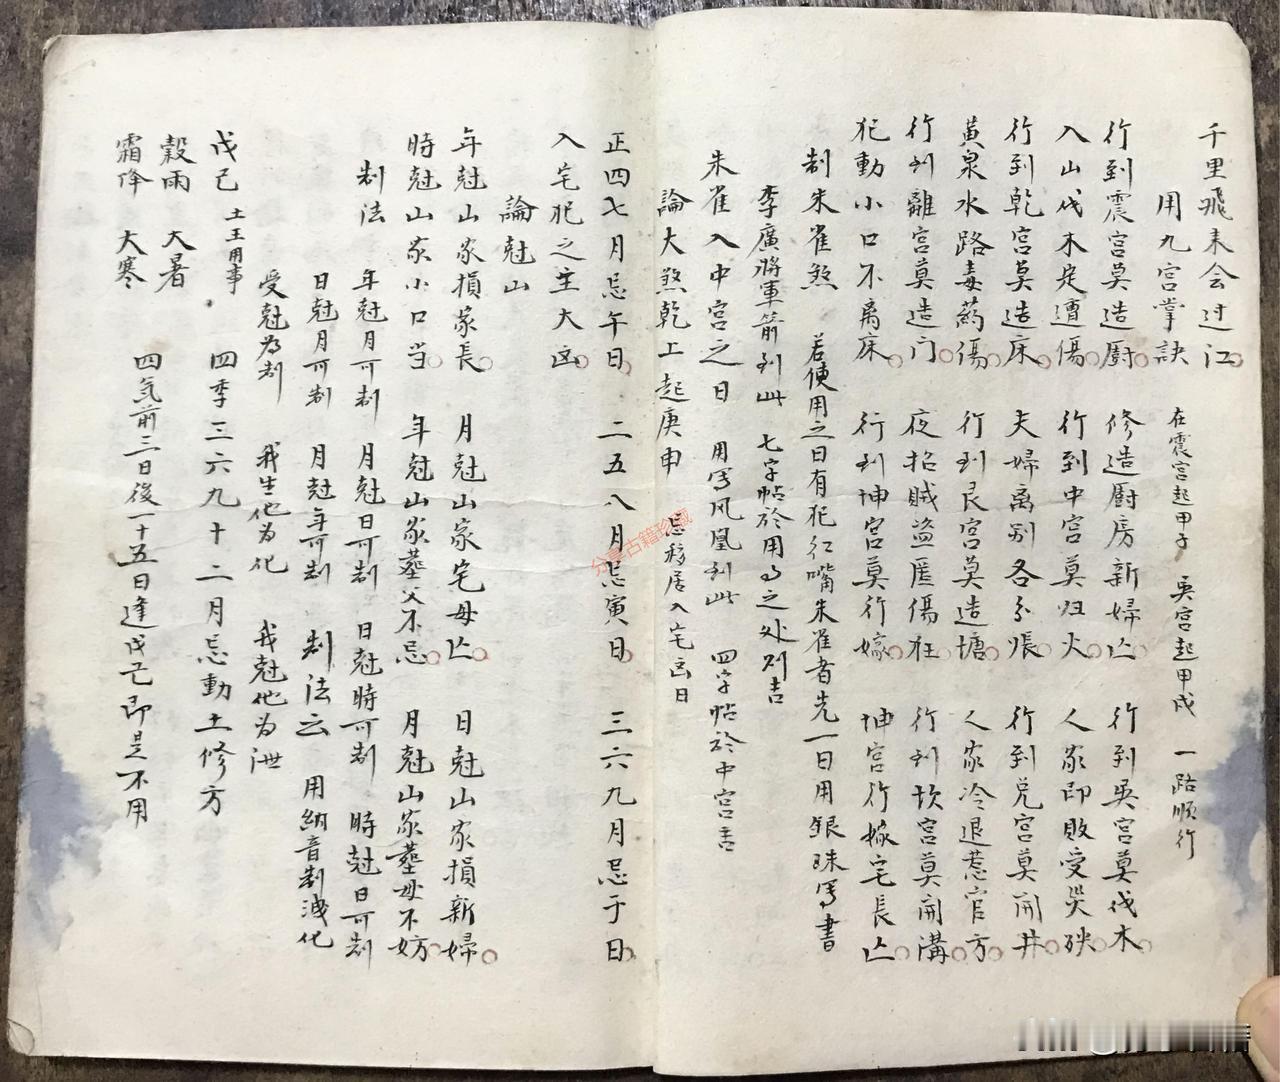 千里飛來会过江
用九宫掌訣 在震宫起甲子 巽宫起甲戌 一路順行
行到震宫莫造廚 修造廚房新婦亡 行到巽宫莫伐木
入山伐木定遭傷 行到中宫莫归火 人家即敗受災殃
行到乾宫莫造床 夫婦离别各分張 行到兑宫莫開井
黄泉水路毒药傷 行到艮宫莫造塘 人家冷退惹官方
行到離宫莫造门 夜招賊盗匪傷狂 行到坎宫莫開溝
犯動小口不离床 行到坤宫莫行嫁 坤宫行嫁宅長亡
制朱雀煞 若使用之日有犯红嘴朱雀者先一日用銀珠写書
李廣將軍箭到此 七字帖於用事之处则吉
朱雀入中宫之日 用写凤凰到此 四字帖於中宫吉
論大煞乾上起庚申 忌移居入宅凶日
正四七月忌午日 二五八月忌寅日 三六九月忌子日
入宅犯之主大凶
論尅山
年尅山家損家長 月尅山家宅母亡 日尅山家損新婦
時尅山家小口当 年尅山家葬父不忌 月尅山家葬母不妨
制法 年尅月可制 月尅日可制 日尅時可制 時尅日可制
日尅月可制 月尅年可制 制法云 用納音制洩化
受尅为制 我生他为化 我尅他为泄
戊己 土王用事 四季三六九十二月忌動土修方
穀雨 大暑
霜降 大寒 四気前三日後一十五日逢戊己即是不用
分享古籍珍藏